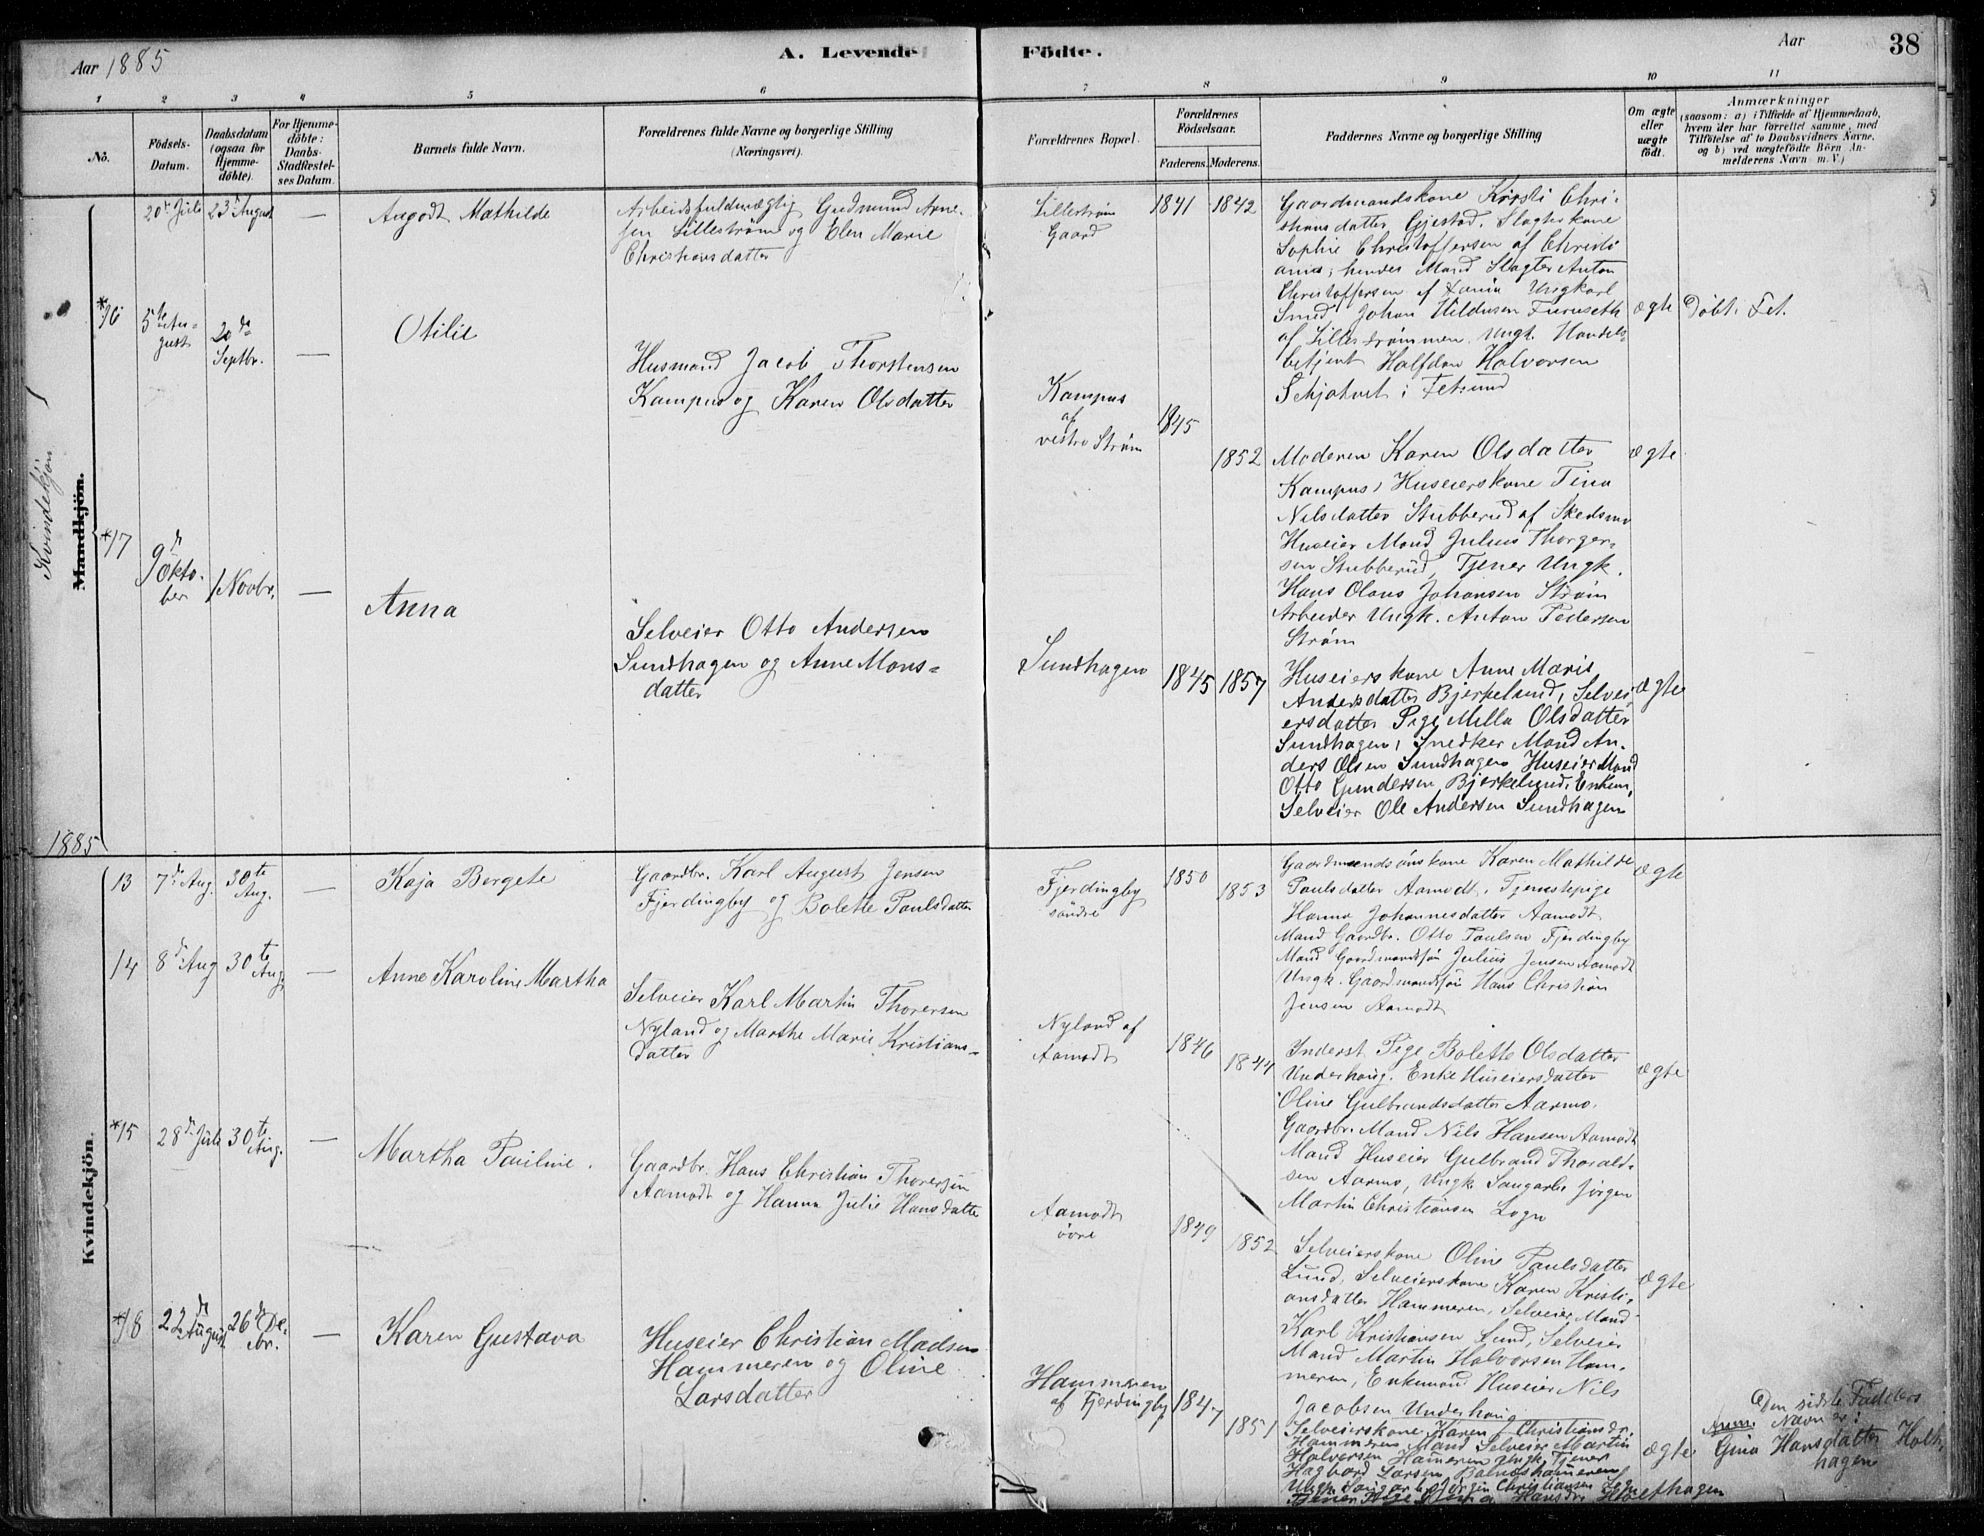 Aar 1885
A. Levende
Födte.
Aar
38
1
2
3
4
5
6
7
8
9
10
11
No.
Födsels-
Datum.
Daabsdatum
(ogsaa for
Hjemme-
döbte).
For Hjemme-
döbte:
Daabs-
Stadfæstel-
ses Datum.
Barnets fulde Navn.
Forældrenes fulde Navne og borgerlige Stilling
(Næringsvei).
Forældrenes Bopæl.
Forældrenes
Födselsaar.
Faderens.
Moderens.
Faddernes Navne og borgerlige Stilling
Om ægte
eller
uægte
födt.
Anmærkninger
(saasom: a) i Tilfælde af Hjemmedaab,
hvem der har forrettet samme, med
Tilföielse af to Daabsvidners Navne,
og b) ved uægtefödte Börn An-
melderens Navn m. V.)
Kvindekjön
Mandkjön.
20de Juli
23de August
—
Aagodt Mathilde
Arbeidsfuldmægtig Gudmund Arne-
sen Lillestrøm og Elen Marie
Christiansdatter
Lillestrøm
Gaard
1841
1842
Gaardmandskone Kirsti Chri-
stiansdatter Gjestad. Slagterkone
Sophie Christoffersen af Christi
ania; hendes Mand Slagter Anton
Christoffersen af Xania Ungkarl
Smed Johan Hildusen Furuseth
af Lillestrømmen. Ungk. Handels-
betjent Halfdan Halvorsen
i Fetsund
ægte
Döbt i Fet.
*16
5te Au-
gust
20de
Septbr.
—
Otilie
Husmand Jacob Thorstensen
Kampus og Karen Olsdatter
Kampus
af
vestre Strøm
1845
1852
Moderen Karen Olsdatter
Kampus, Huseierskone Tina
Nilsdatter Stubberud af Skedsmo
Huseier Mand Julius Thorger-
sen Stubberud, Tjener Ungk.
Hans Olaus Johansen Strøm
Arbeider Ungk. Anton Pedersen
Strøm
ægte
*17
9de
Okto-
ber
1 Novbr.
—
Anna
Selveier Otto Andersen
Sundhagen og Anne Mons-
datter
Sundhagen
1845
1857
Huseierskone Anne Marie
Andersdatter Bjerkelund, Selvei-
ersdatter Pige Milla Olsdatter
Sundhagen, Snedker Mand An-
ders Olsen Sundhagen Huseier Mand
Otto Gundersen Bjerkelund, Enkem.
Selveier Ole Andersen Sundhagen
ægte
1885
Kvindekjön.
13
7de Aug.
30te
Aug.
—
Kaja Bergete
Gaardbr. Karl August Jensen
Fjerdingby og Bolette Paulsdatter
Fjerdingby
söndre
1850
1853
Gaardmandsönskone Karen Mathilde
Paulsdatter Aamodt. Tjenestepige
Hanna Johannesdatter Aamodt
Mand Gaardbr. Otto Paulsen Fjerdingby
Mand Gaardmandssön Julius Jensen Aamodt
Ungk. Gaardmandssön Hans Christian
Jensen Aamodt
ægte
14
8de Aug
30te
Aug.
—
Anne Karoline Martha
Selveier Karl Martin Thorersen
Nyland og Marthe Marie Kristians-
datter
Nyland af
Aamodt
1846
1844
Inderst Pige Bolette Olsdatter
Underhaug. Enke Huseiersdatter
Oline Gulbrandsdatter Aarmo.
Gaardbr. Mand Nils Hansen Aamodt
Mand Huseier Gulbrand Thorald-
sen Aarmo, Ungk. Jörgen
Martin Christiansen Logn
ægte
*15
28de Juli
30te
Aug.
—
Martha Pauline.
Gaardbr. Hans Christian Thorersen
Aamodt og Hanna Julie Hansdatter
Aamodt
övre
1849
1852
Selveierskone Oline Paulsdatter
Lund, Selveierskone Karen Kristi-
ansdatter Hammeren, Selveier Mand
Karl Kristiansen Lund, Selveier
Mand Martin Halvorsen Ham-
meren, Enkemand Huseier Nils
Jacobsen Underhaug
ægte
*18
22de
August
26de De-
cbr.
—
Karen Gustava
Huseier Christian Madsen
Hammeren og Oline
Larsdatter
Hammeren
af Fjerdingby
1847
1851
Selveierskone Karen Christiansdr.
Hammeren Mand Selveier Martin
Halvorsen Hameren Ungk. Tjener
Hagbard Larsen
Ungk. Jörgen Christiansen Logn
Tjener Pige Hansdr. Holthagen
ægte
Den sidste Fadders
Anm. Navn er:
Gina Hansdatter Holt-
hagen